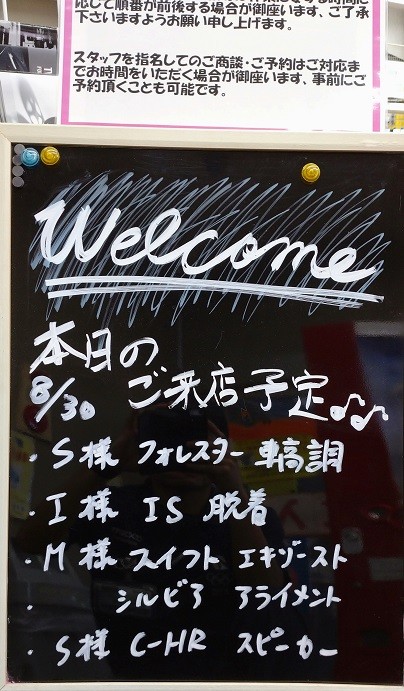 応じて順番が前後する場合が御座います、ご了承
下さいますようお願い申し上げます。
スタッフを指名してのご商談・ご予約はご対応ま
でお時間をいただく場合が御座います、事前にご
予約頂くことも可能です。
Welcome
本日の
8/30 ご来店予定♪♪
・S様 フォレスター 車高調
・I様 IS 脱着
・M様 スイフト エキゾースト
・ シルビア アライメント
・S様 C-HR スピーカー